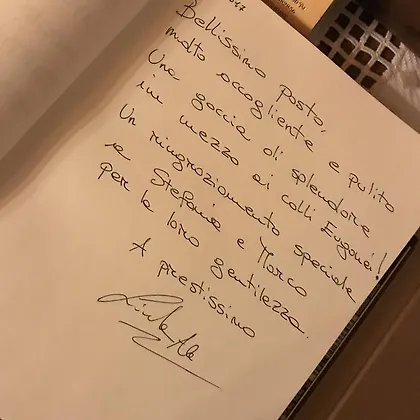 Bellissimo posto,
molto accogliente e pulito
Una goccia di splendore
in mezzo ai colli Euganei!
Un ringraziamento speciale
a Stefania e Marco
per la loro gentilezza.
A prestissimo